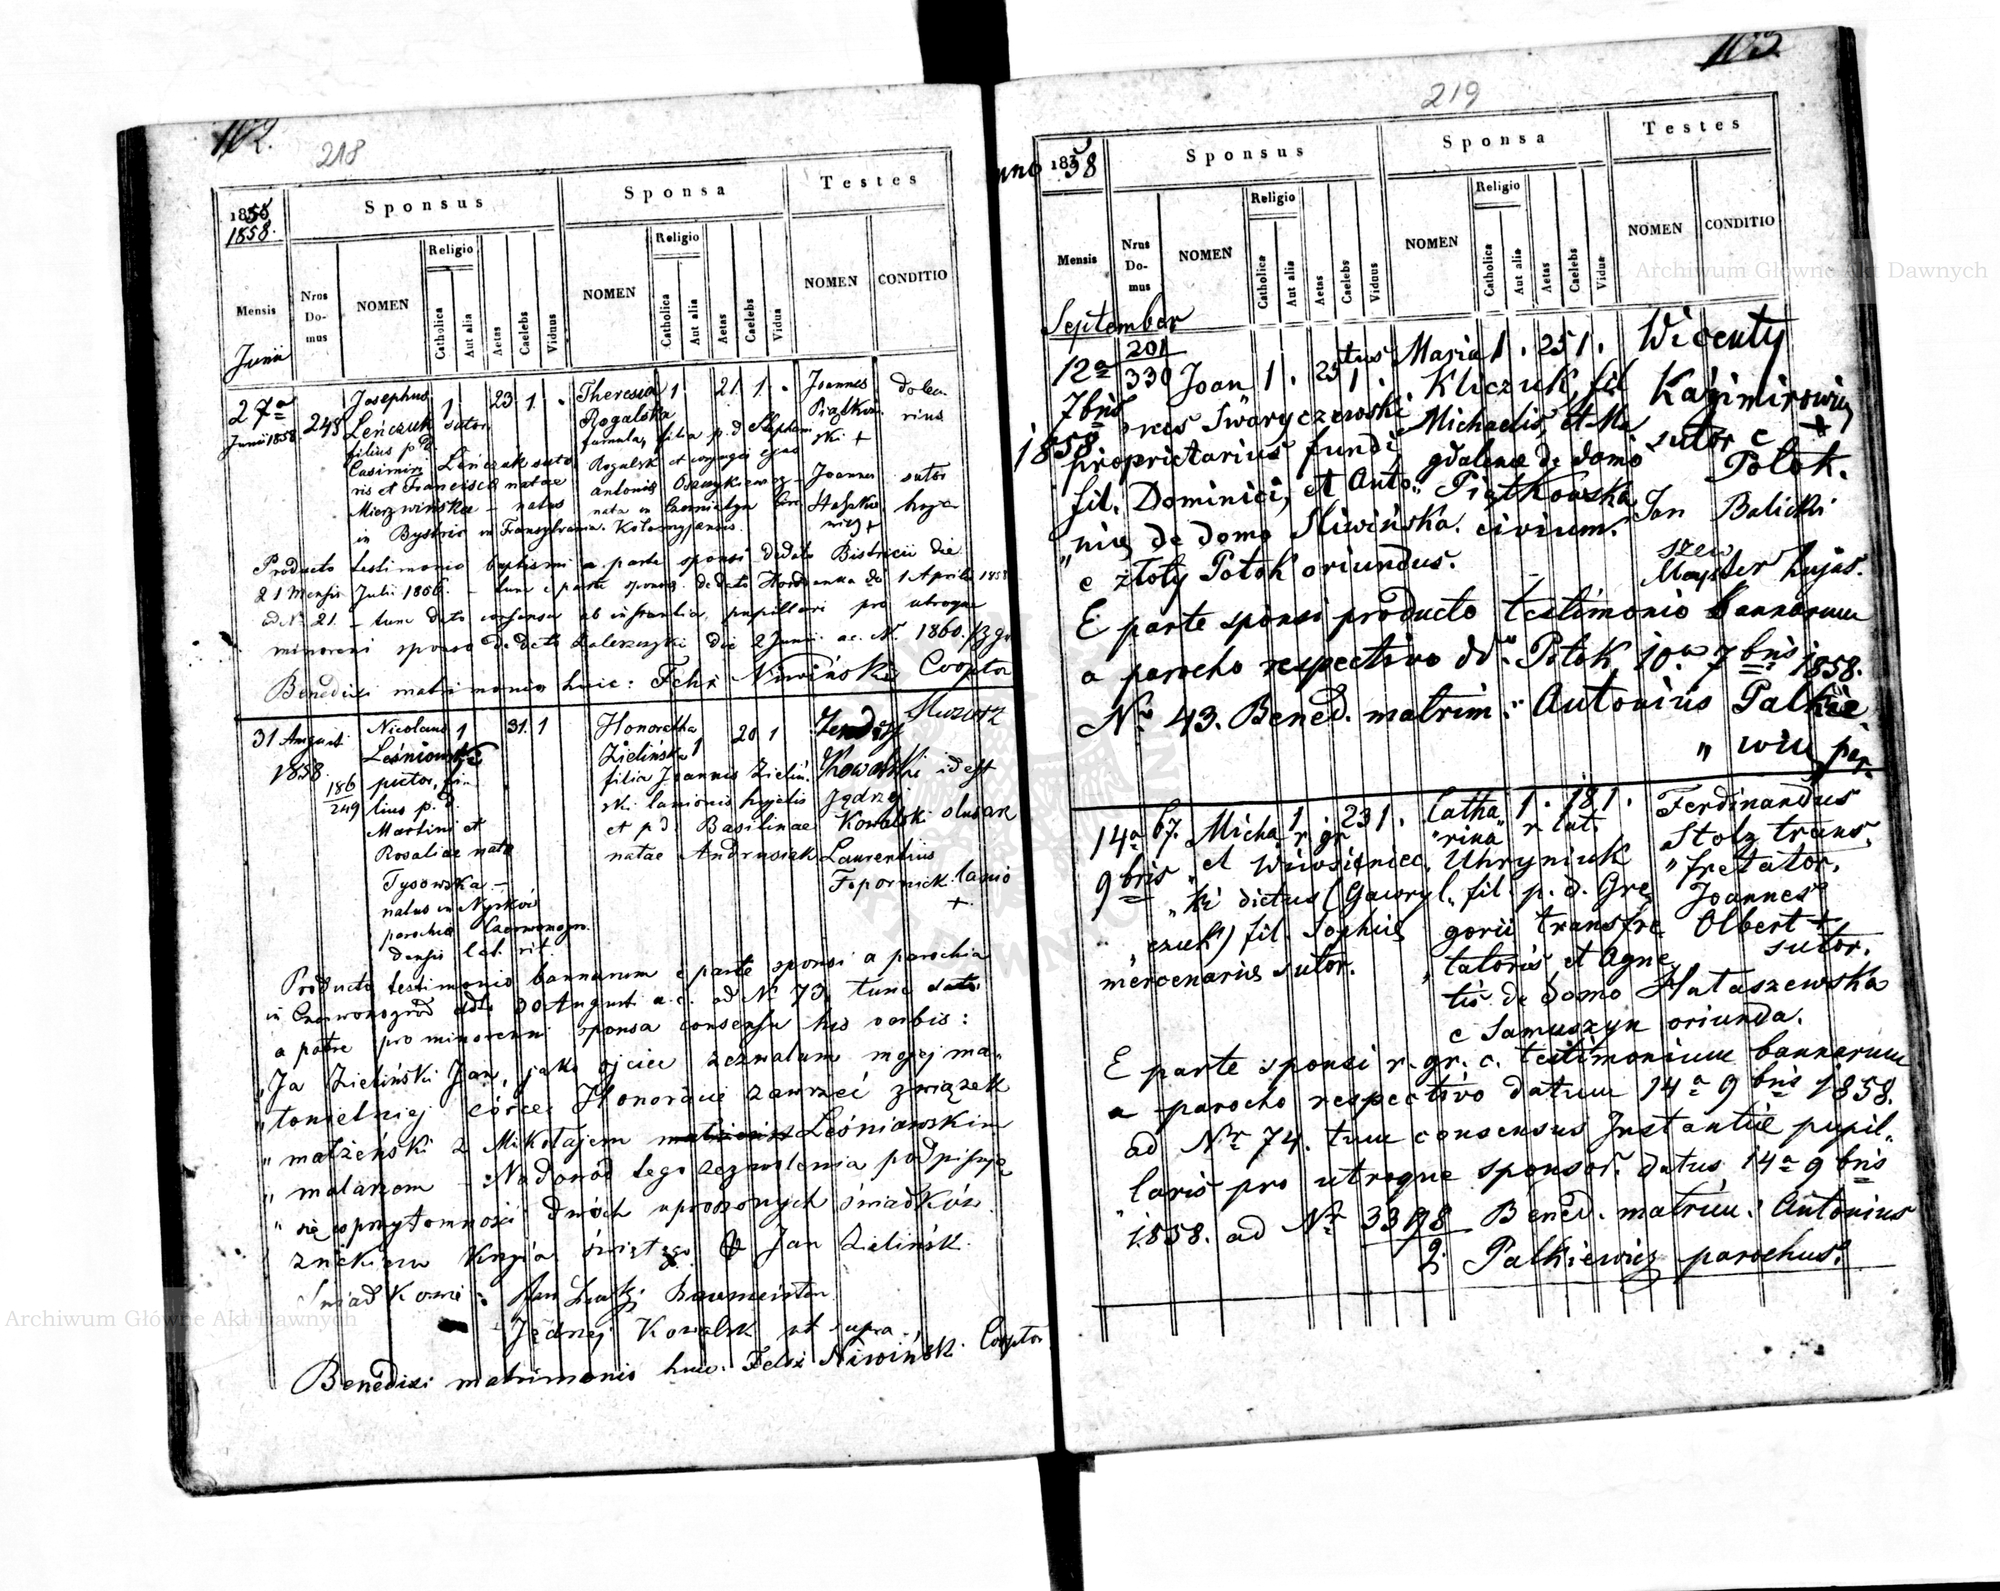 102.
218
1855
1858.
Sponsus
Sponsa
Testes
Mensis
Nrus Domus
NOMEN
Religio
Catholica
Aut alia
Aetas
Caelebs
Viduus
NOMEN
Religio
Catholica
Aut alia
Aetas
Caelebs
Vidua
NOMEN
CONDITIO
Junii
27a
Junii 1858
245
Josephus 1 23 1
Leńczuk sutor
filius p. d.
Casimiri Leńczuk suto
ris et Francisca natae
Mierzwińska – natus
in Bystric in Transylvania.
Theresia 1 21 1
Rogalska
famula, filia p. d. Stephani
Rogalski et conjugis ejus
antonia
nata in Czerniatyn
Kołomyjensis.
Joannes
Piątkow
ski +
dolea
rius
Joannes
sutor
Producto testimonio baptismi a parte sponsi de dato Bistricii die
21 Mensis Julii 1856. – tum e parte sponsae de dato Horodenka do 1 Aprilis 1858
ad N. 21. – tum dato consensu ab instantia pupillari pro utroque
minoreni sponso de dato Zaleszczyki die 2 Junii a.c. N. 1860.
Benedixi matrimonio huic: Felix Niwiński Cooptor
31 Augusti
1858.
186
249
Nicolaus 1 31 1
Leśniowski
pictor, fi
lius p. d.
Martini et
Rosaliae nata
Tysowska –
natus in Nyrków
parochia Czerwonogro
densis lat. rit.
Honoratha 20 1
Zielińska 1
filia Joannis Zieliń
ski lanionis hujatis
et p. d. Basilinae
natae Andrusiak
Kowalski id est
Jędrzej
Kowalski slusarz
Laurentius
Topornick. lanio
+
Producto testimonio bannarum e parte sponsi a parochia
in Czerwonogrod ddto 30 Augusti a.c. ad N 73. tunc dato
a patre pro minorenni sponsa consensu his verbis:
„Ja Zieliński Jan, jako ojciec zezwalam mojej ma„
„toletniej córce Honoracie zawrzeć związek
„ małżeński z Mikołajem Leśniowskim
„ malarzem – Na dowód tego zezwolenia podpisuje
„ się w przytomności dwóch uproszonych świadków
znakiem Krzyża świętego + Jan Zieliński.
Świadkowie: Baumeister
Jędrzej Kowalsk ut supra
Benedixi matrimonio huic. Felix Niwińsk. Cooptor
103
219
Anno 1858
Sponsus
Sponsa
Testes
Mensis
Nrus Domus
NOMEN
Religio
Catholica
Aut alia
Aetas
Caelebs
Viduus
NOMEN
Religio
Catholica
Aut alia
Aetas
Caelebs
Vidua
NOMEN
CONDITIO
September
12a
7bris
1858
201
330
Joan 1 . 25 1
nes Swaryczewski
proprietarius fundi
fil. Dominici, et Anto„
„nia de domo Sliwińska. civium.
e złoty Potok oriundus.
Maria 1 . 25 1 .
Kliczuk, fil
Michaelis, et Ma
gdalenae de domo
Piątkowska
Wicenty
Kaźimirowicz
sutor e +
Potok.
Jan Balicki
szew
Majster hujas.
E parte sponsi producto testimonio bannarum
a parocho respectivo dd. Potok 10a 7bris 1858.
Nr 43. Bened. matrim: Antonius Palkie
„ wicz par.
14a
9bris
67.
Micha 1 23 1 .
r. gr
„ el Wiwosieniec.
„ ki dictus (Gawryl„
„ czuk) fil. Sophiae
mercenarius sutor.
Catha 1 . 18 1 .
„rina„ r lat.
Uhryniuk
fil. p. d. Gre
gorii transfre
„ tatoris et Agne
tis de domo Hataszewska
e Samuszyn oriunda.
Ferdinandus
Stolz trans„
„fretator.
Joannes
Olbert +
sutor.
E parte sponsi r. gr. c. testimonium bannarum
a parocho respectivo datum 14a 9bris 1858.
ad Nr 74. tum consensus Instantiae pupil„
„laris pro utroque sponsor. datus 14a 9bris
1858. ad Nr 3398 Bened. matrim: Antonius
Palkiewicz parochus.
Archiwum Główne Akt Dawnych
Archiwum Główne Akt Dawnych